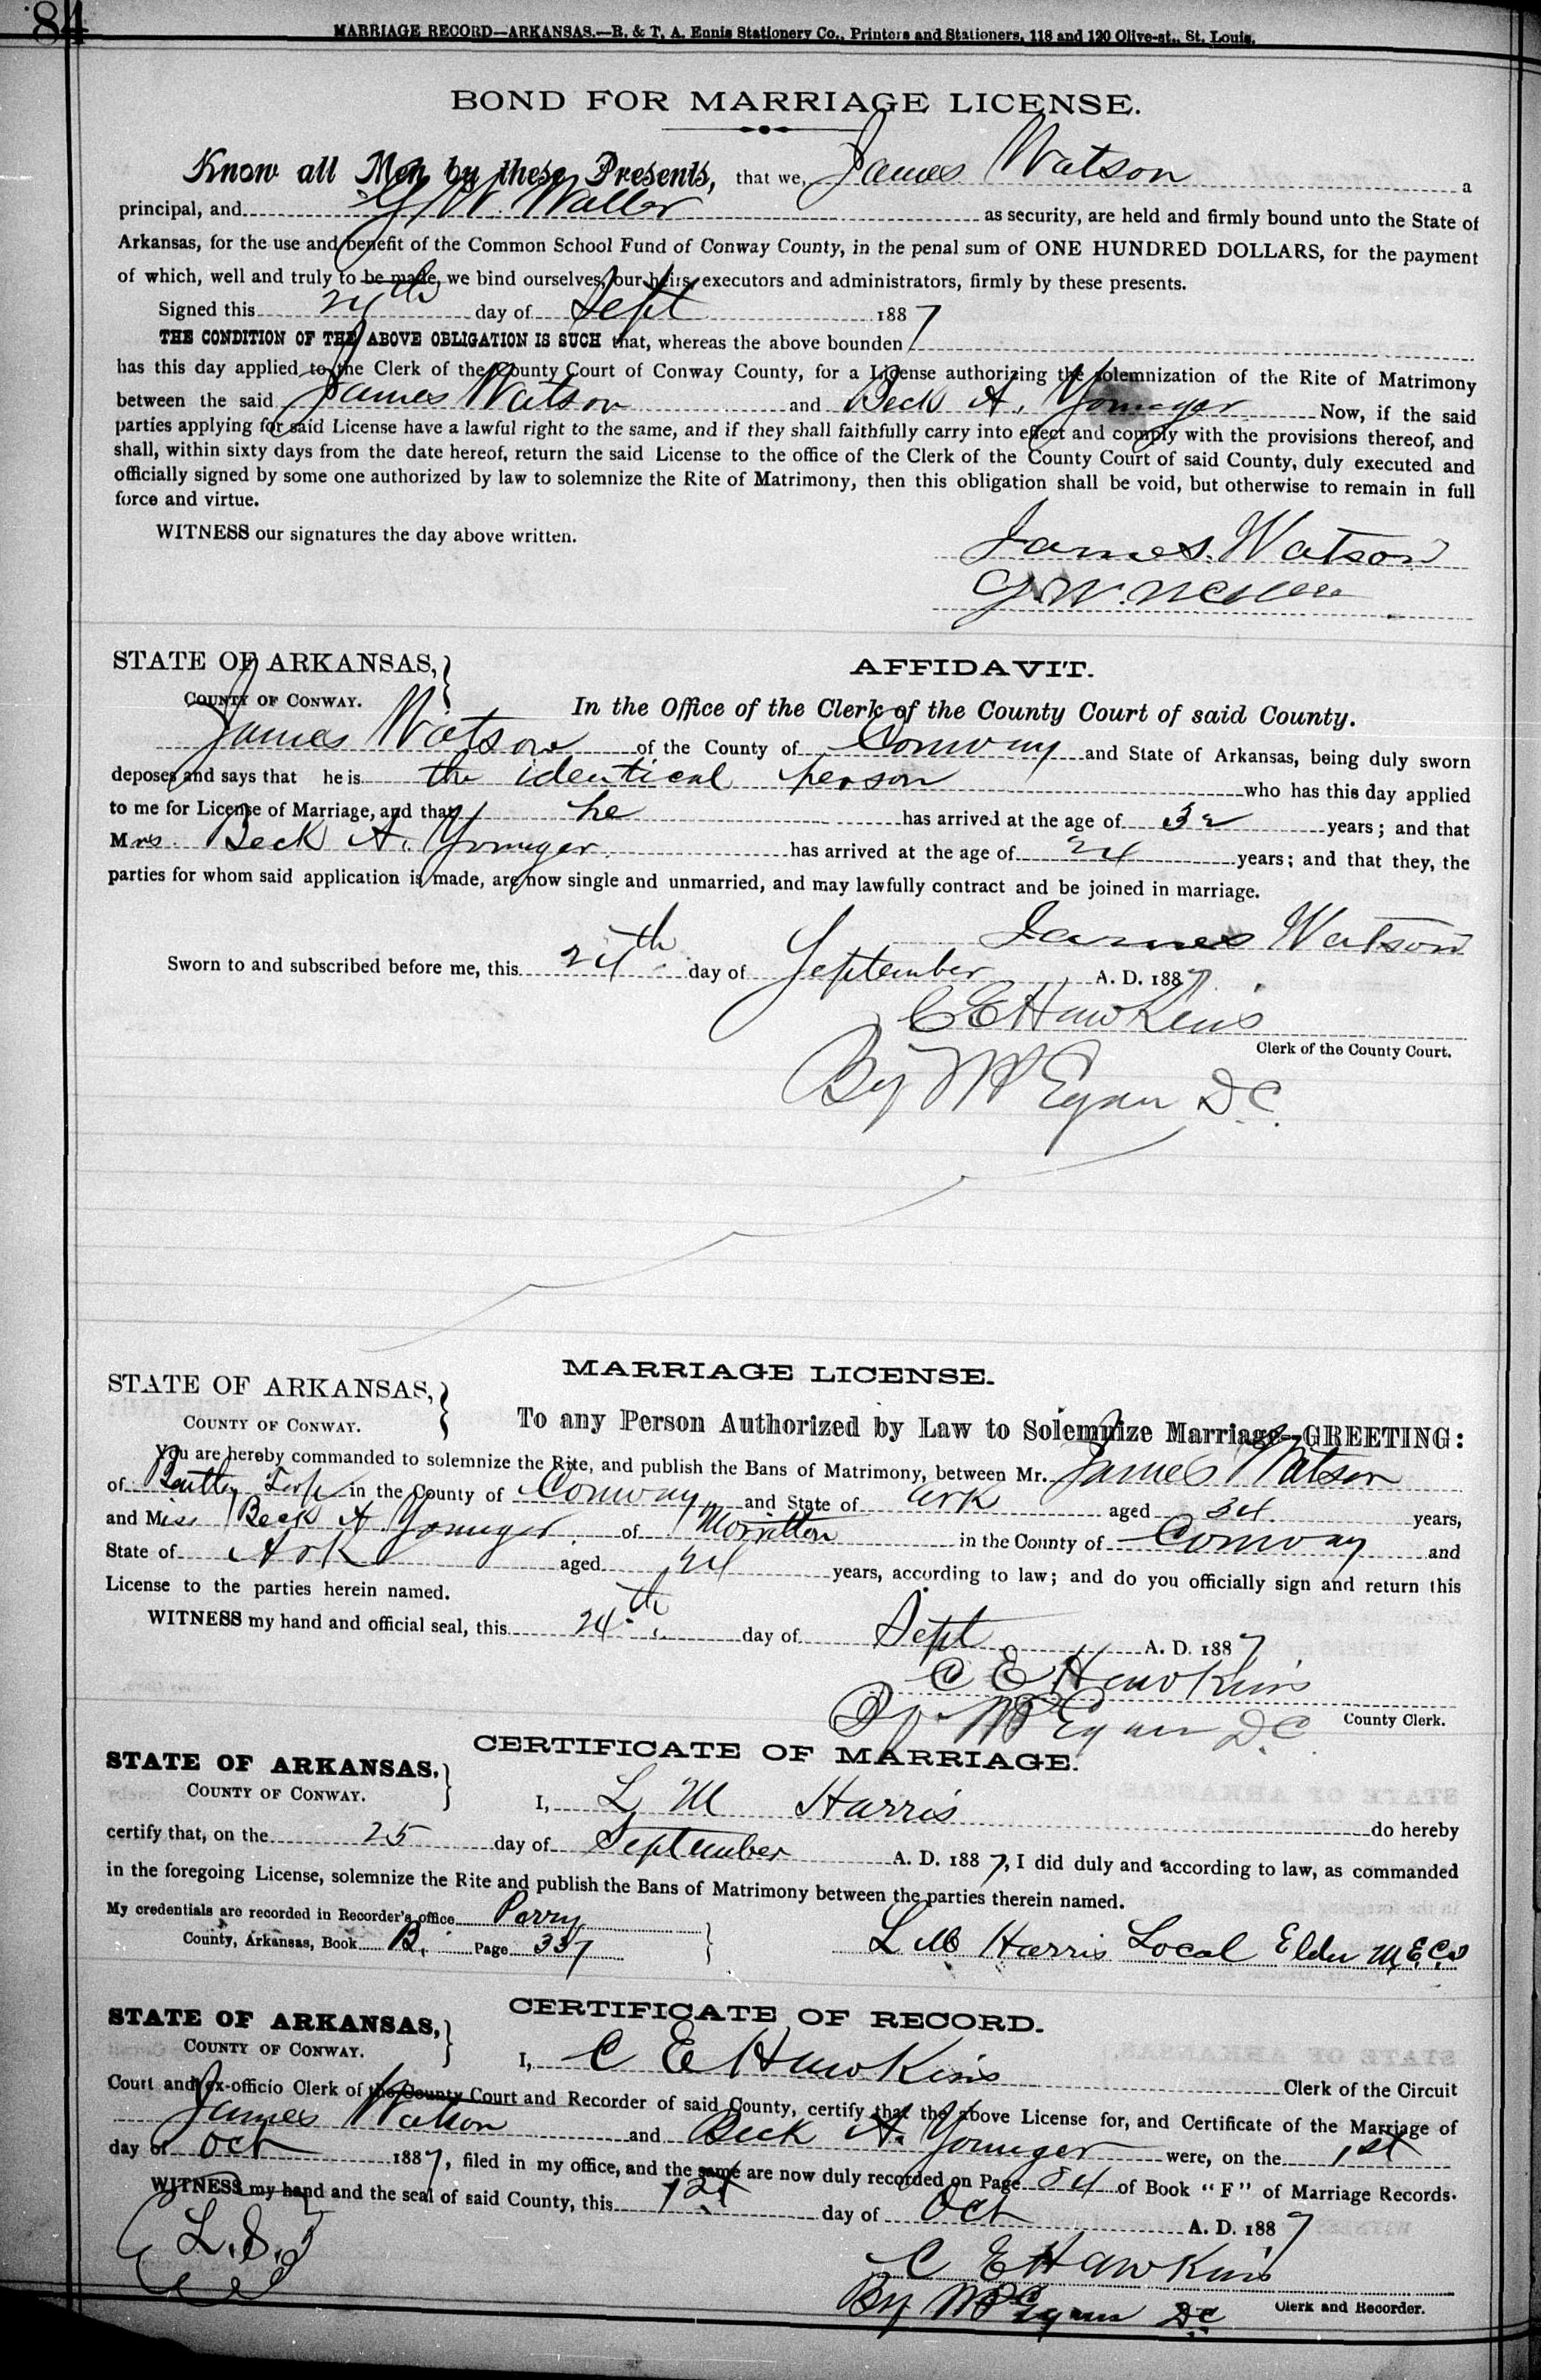 84
MARRIAGE RECORD—ARKANSAS.—B. & T. A. Ennis Stationery Co., Printers and Stationers, 118 and 120 Olive-st., St. Louis.
BOND FOR MARRIAGE LICENSE.
Know all Men by these Presents, that we, James Watson a
principal, and G. W. Waller as security, are held and firmly bound unto the State of
Arkansas, for the use and benefit of the Common School Fund of Conway County, in the penal sum of ONE HUNDRED DOLLARS, for the payment
of which, well and truly to be made, we bind ourselves, our heirs, executors and administrators, firmly by these presents.
Signed this 24th day of Sept 1887
THE CONDITION OF THE ABOVE OBLIGATION IS SUCH that, whereas the above bounden
has this day applied to the Clerk of the County Court of Conway County, for a License authorizing the solemnization of the Rite of Matrimony
between the said James Watson and Beck A. Younger Now, if the said
parties applying for said License have a lawful right to the same, and if they shall faithfully carry into effect and comply with the provisions thereof, and
shall, within sixty days from the date hereof, return the said License to the office of the Clerk of the County Court of said County, duly executed and
officially signed by some one authorized by law to solemnize the Rite of Matrimony, then this obligation shall be void, but otherwise to remain in full
force and virtue.
WITNESS our signatures the day above written.
James. Watson
G. W.
STATE OF ARKANSAS,
AFFIDAVIT.
COUNTY OF CONWAY.
In the Office of the Clerk of the County Court of said County.
James Watson of the County of Conway and State of Arkansas, being duly sworn
deposes and says that he is the identical person who has this day applied
to me for License of Marriage, and that he has arrived at the age of 32 years; and that
Mrs. Beck A. Younger has arrived at the age of 24 years; and that they, the
parties for whom said application is made, are now single and unmarried, and may lawfully contract and be joined in marriage.
James Watson
Sworn to and subscribed before me, this 24th day of September A. D. 1887
C E Hawkins
Clerk of the County Court.
By W P Egan D.C.
MARRIAGE LICENSE.
STATE OF ARKANSAS,
COUNTY OF CONWAY.
To any Person Authorized by Law to Solemnize Marriage—GREETING:
You are hereby commanded to solemnize the Rite, and publish the Bans of Matrimony, between Mr. James Watson
of in the County of Conway and State of Ark aged 34 years,
and Miss Beck A Younger of Morrilton in the County of Conway and
State of Ark aged 24 years, according to law; and do you officially sign and return this
License to the parties herein named.
WITNESS my hand and official seal, this 24th day of Sept A. D. 1887
C E Hawkins
County Clerk.
By W P Egan D.C.
CERTIFICATE OF MARRIAGE.
STATE OF ARKANSAS,
COUNTY OF CONWAY.
I, L M Harris do hereby
certify that, on the 25 day of September A. D. 1887, I did duly and according to law, as commanded
in the foregoing License, solemnize the Rite and publish the Bans of Matrimony between the parties therein named.
My credentials are recorded in Recorder's office Perry
County, Arkansas, Book B. Page 337
L M Harris Local Elder M.E.C.S
CERTIFICATE OF RECORD.
STATE OF ARKANSAS,
COUNTY OF CONWAY.
I, C E Hawkins Clerk of the Circuit
Court and ex-officio Clerk of the County Court and Recorder of said County, certify that the above License for, and Certificate of the Marriage of
James Watson and Beck A. Younger were, on the 1st
day of Oct 1887, filed in my office, and the same are now duly recorded on Page 84 of Book "F" of Marriage Records.
WITNESS my hand and the seal of said County, this 1st day of Oct A. D. 1887
L.S.
C E Hawkins
Clerk and Recorder.
By W P Egan D.C.